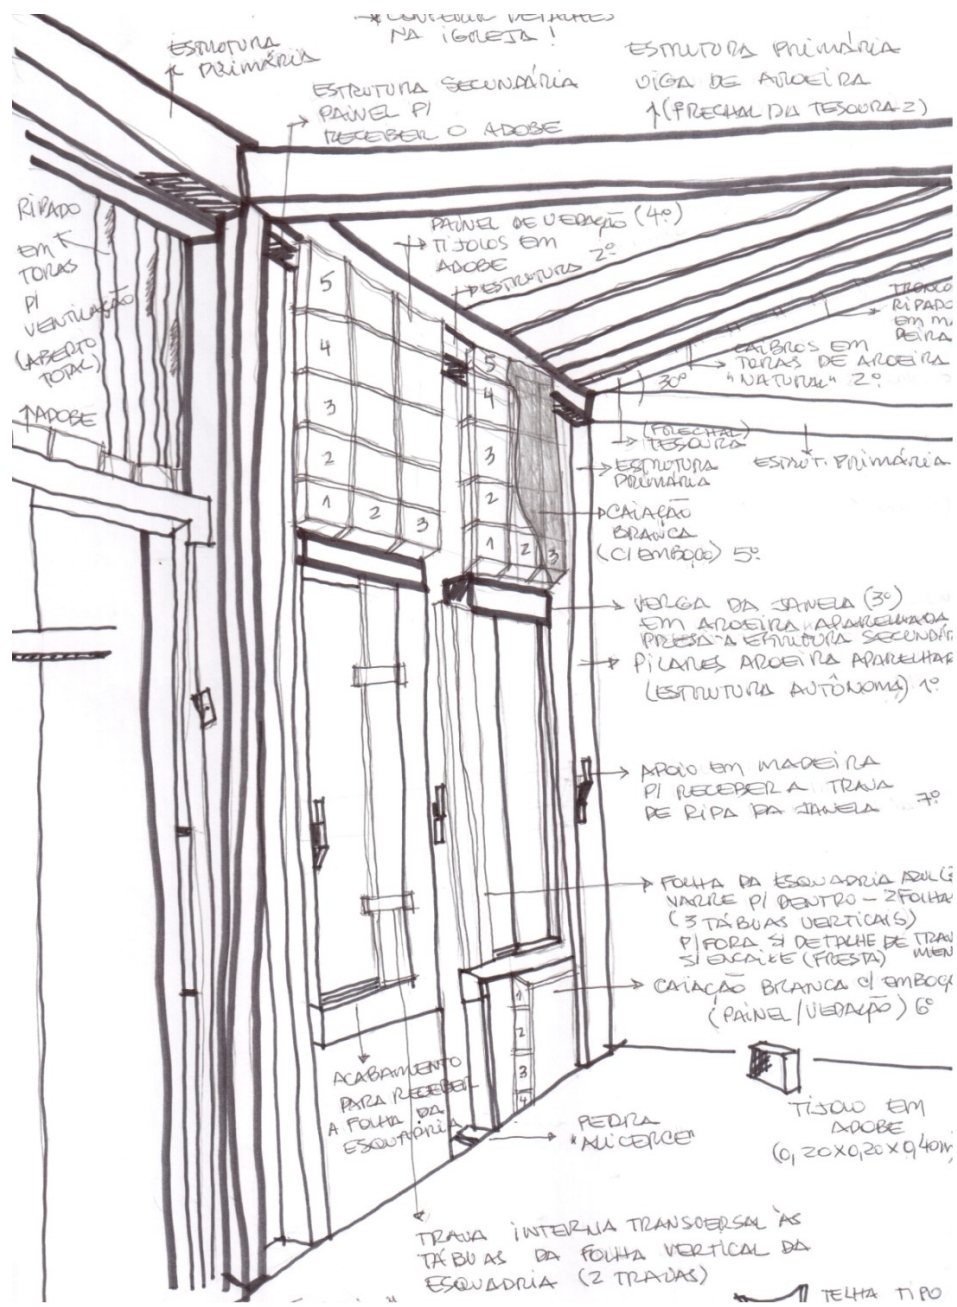 CONFERIR DETALHES
NA IGREJA!
ESTRUTURA
PRIMÁRIA
ESTRUTURA SECUNDÁRIA
PAINEL P/
RECEBER O ADOBE
ESTRUTURA PRIMÁRIA
VIGA DE AROEIRA
(FRECHAL DA TESOURA 2)
RIPADO
EM
TORAS
P/
VENTILAÇÃO
(ABERTO
TOTAL)
ADOBE
PAINEL DE VEDAÇÃO (4º)
TIJOLOS EM
ADOBE
ESTRUTURA 2º
TRONCO
RIPADO
EM MA
DEIRA
CAIBROS EM
TORAS DE AROEIRA
"NATURAL" 2º
30º
5
4
3
2
1 2 3
5
4
3
2
1 2 3
(FRECHAL)
TESOURA
ESTRUTURA
PRIMÁRIA
ESTRUT. PRIMÁRIA
CAIAÇÃO
BRANCA
(C/ EMBOÇO) 5º
VERGA DA JANELA (3º)
EM AROEIRA APARELHADA
PRESA A ESTRUTURA SECUNDÁR
PILARES AROEIRA APARELHAD
(ESTRUTURA AUTÔNOMA) 1º
APOIO EM MADEIRA
P/ RECEBER A TRAVA
DE RIPA DA JANELA 7º
FOLHA DA ESQUADRIA AZUL
VARRE P/ DENTRO - 2 FOLHA
(3 TÁBUAS VERTICAIS)
P/ FORA S/ DETALHE DE TRAV
S/ ENCAIXE (FRESTA) MEN
CAIAÇÃO BRANCA C/ EMBOÇO
(PAINEL/VEDAÇÃO) 6º
1
2
3
4
ACABAMENTO
PARA RECEBER
A FOLHA DA
ESQUADRIA
PEDRA
"ALICERCE"
TIJOLO EM
ADOBE
(0,20X0,20X0,40m
TRAVA INTERNA TRANSVERSAL ÀS
TÁBUAS DA FOLHA VERTICAL DA
ESQUADRIA (2 TRAVAS)
TELHA TIPO